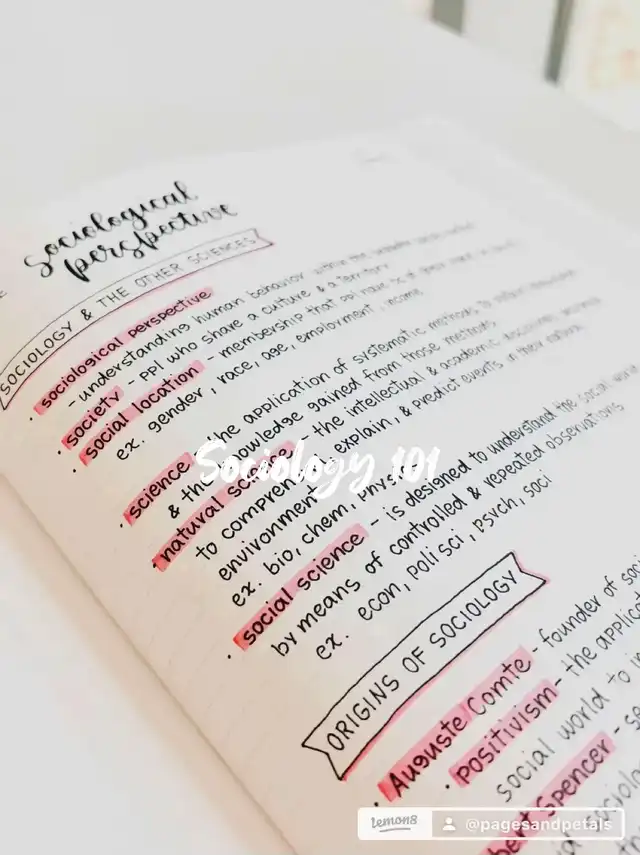 sociological
perspective
SOCIOLOGY & THE OTHER SCIENCES
• sociological perspective
- understanding human behavior within the
• society - ppl who share a culture & a territory
• social location - membership that ppl have
ex. gender, race, age, employment, income
• science - the application of systematic methods to
& the knowledge gained from those methods
• natural science - the intellectual & academic
to comprehend, explain, & predict events in their natural
environment
ex. bio, chem, physics
• social science - is designed to understand the social world
by means of controlled & repeated observations
ex. econ, poli sci, psych, soci
Sociology 101
ORIGINS OF SOCIOLOGY
• Auguste Comte - founder of
• positivism - the
social world to
bert Spencer -
lemon8
@pagesandpetals